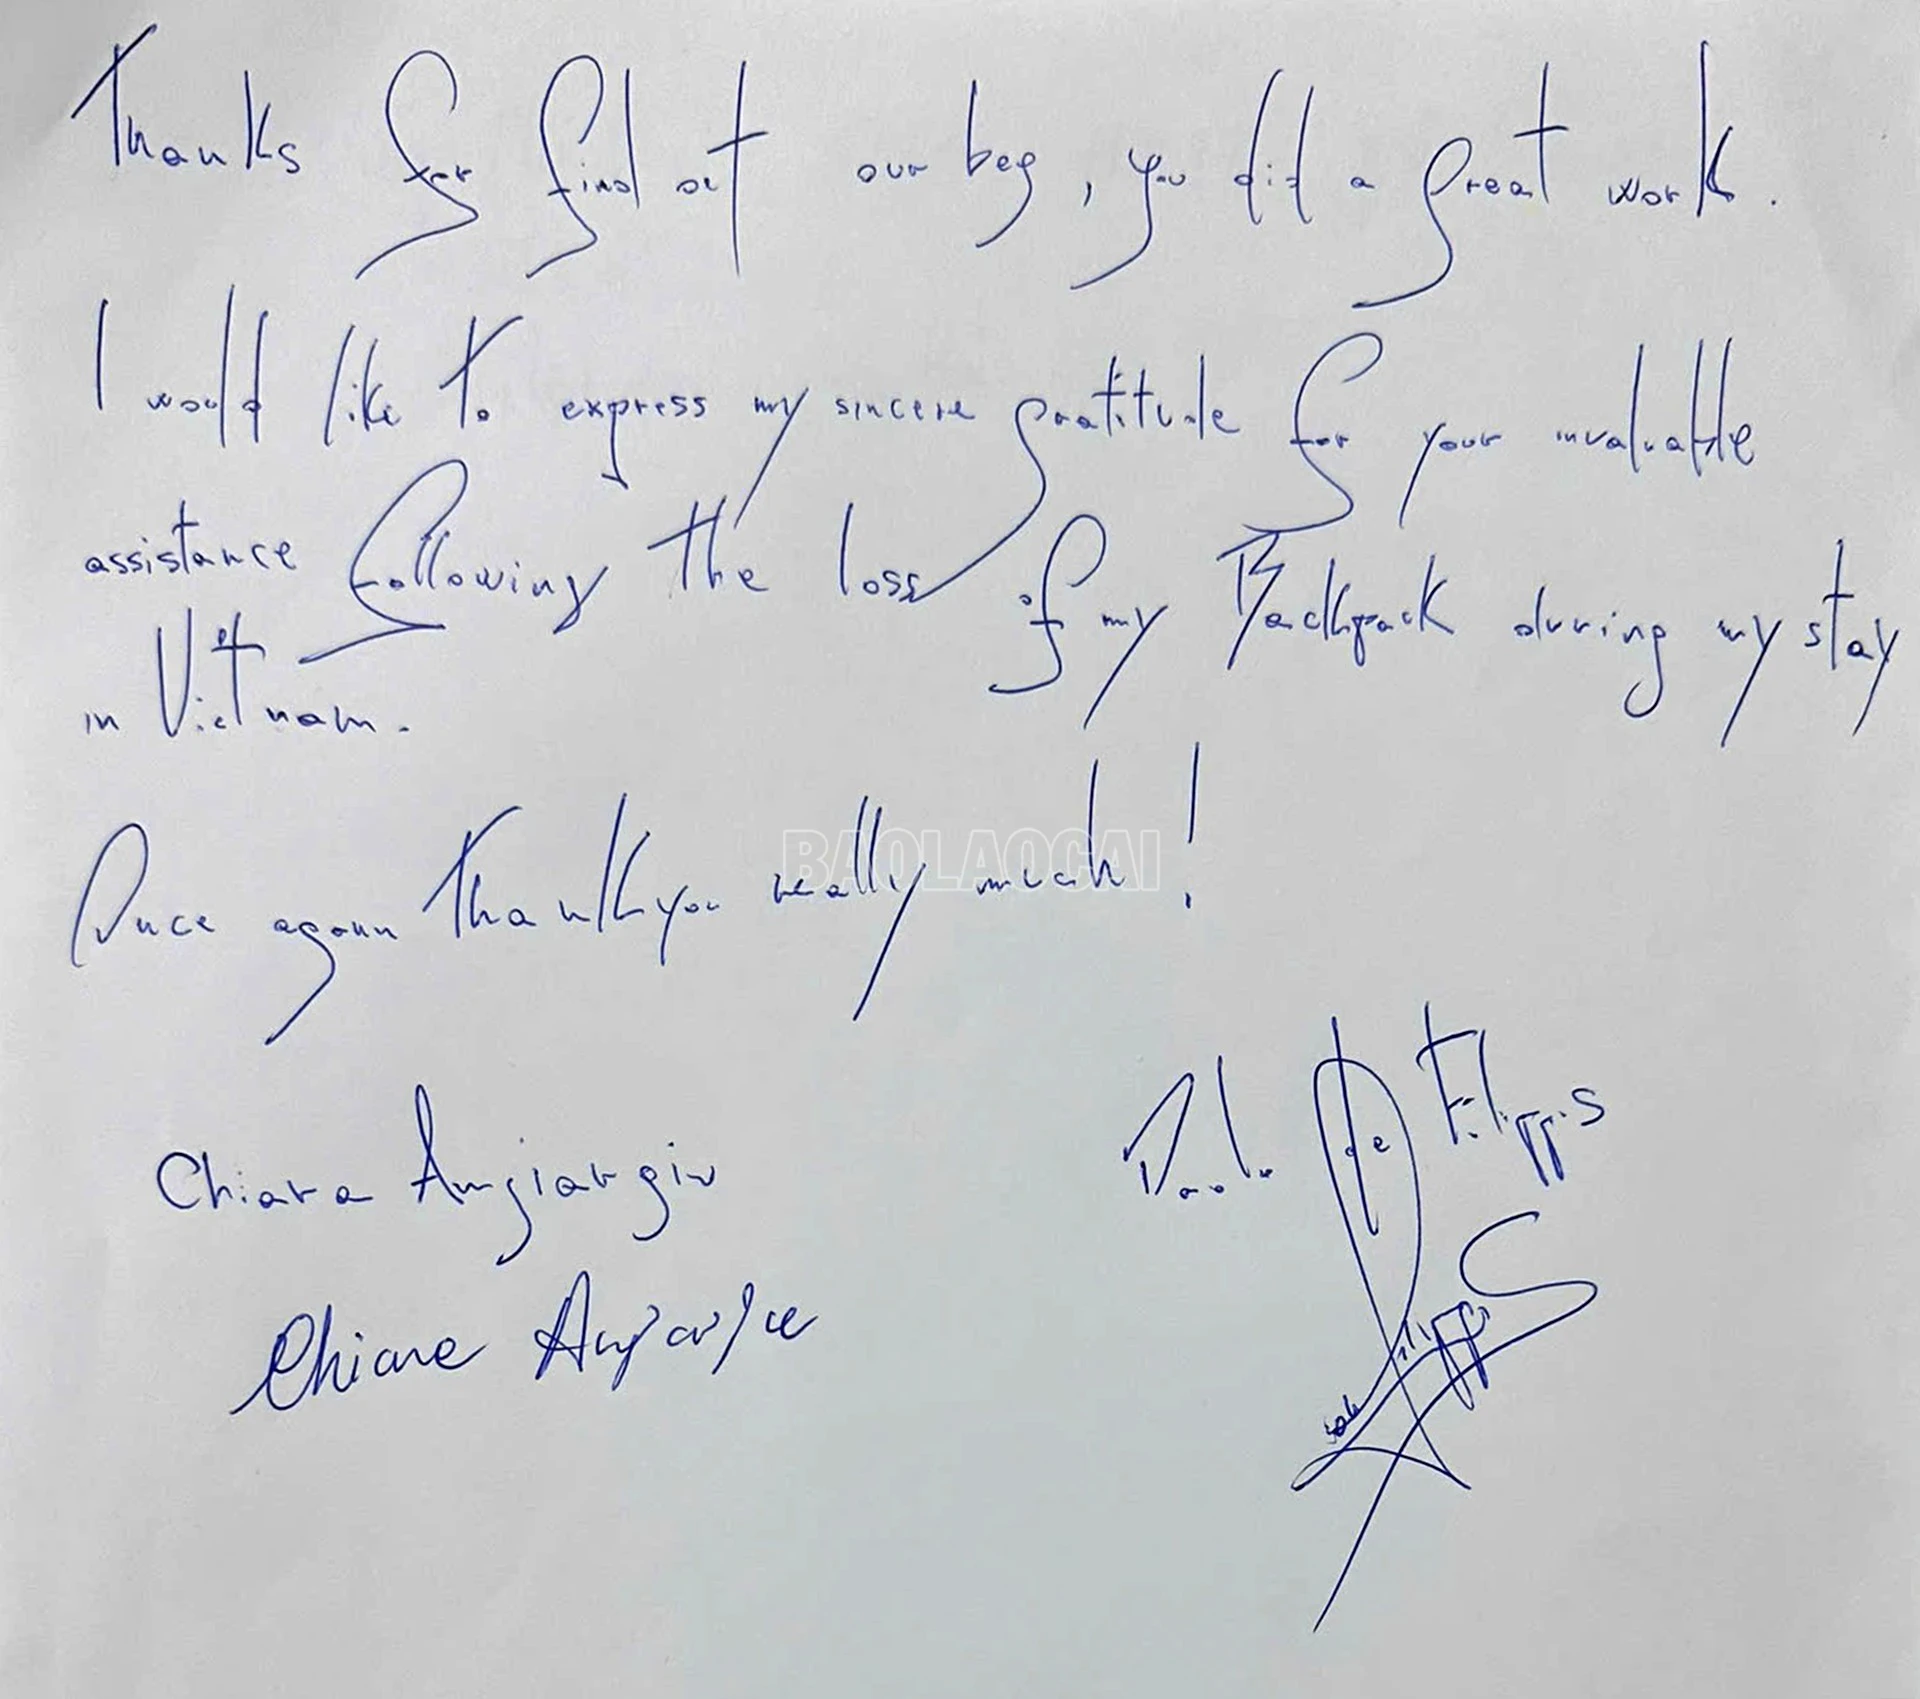 Thanks for find out our bag, you did a great work.
I would like to express my sincere gratitude for your invaluable
assistance following the loss of my Backpack during my stay
in Vietnam.
Once again thank you really much!
BAOLAOCAI
Chiara Angiargiu
Paolo de Filippis
Chiara